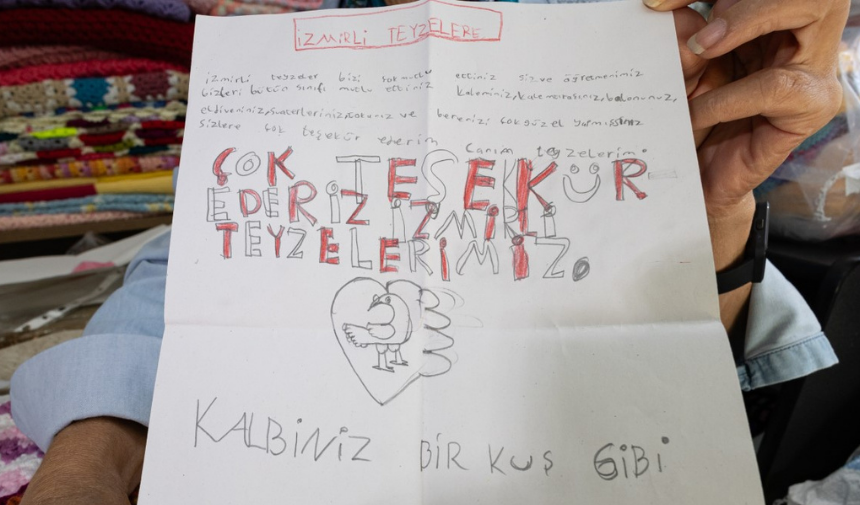 İZMİRLİ TEYZELERE
izmirli teyzeler bizi çok mutlu ettiniz siz ve öğretmenimiz
bizleri bütün sınıfı mutlu ettiniz kaleminiz, kalem kutunuz, balonunuz,
eldiveniniz, suaterleriniz, ve bereniz çok güzel yapmışsınız
sizlere çok teşekür ederim canım teyzelerim.
ÇOK TEŞEKKÜR
EDERİZ İZMİRLİ
TEYZELERİMİZ.
KALBİNİZ BİR KUŞ GİBİ